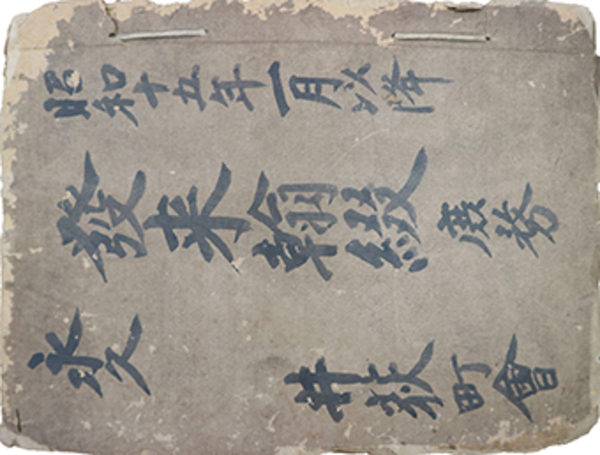 昭和十五年一月以降
發来翰綴 庶務
永久 井 町會